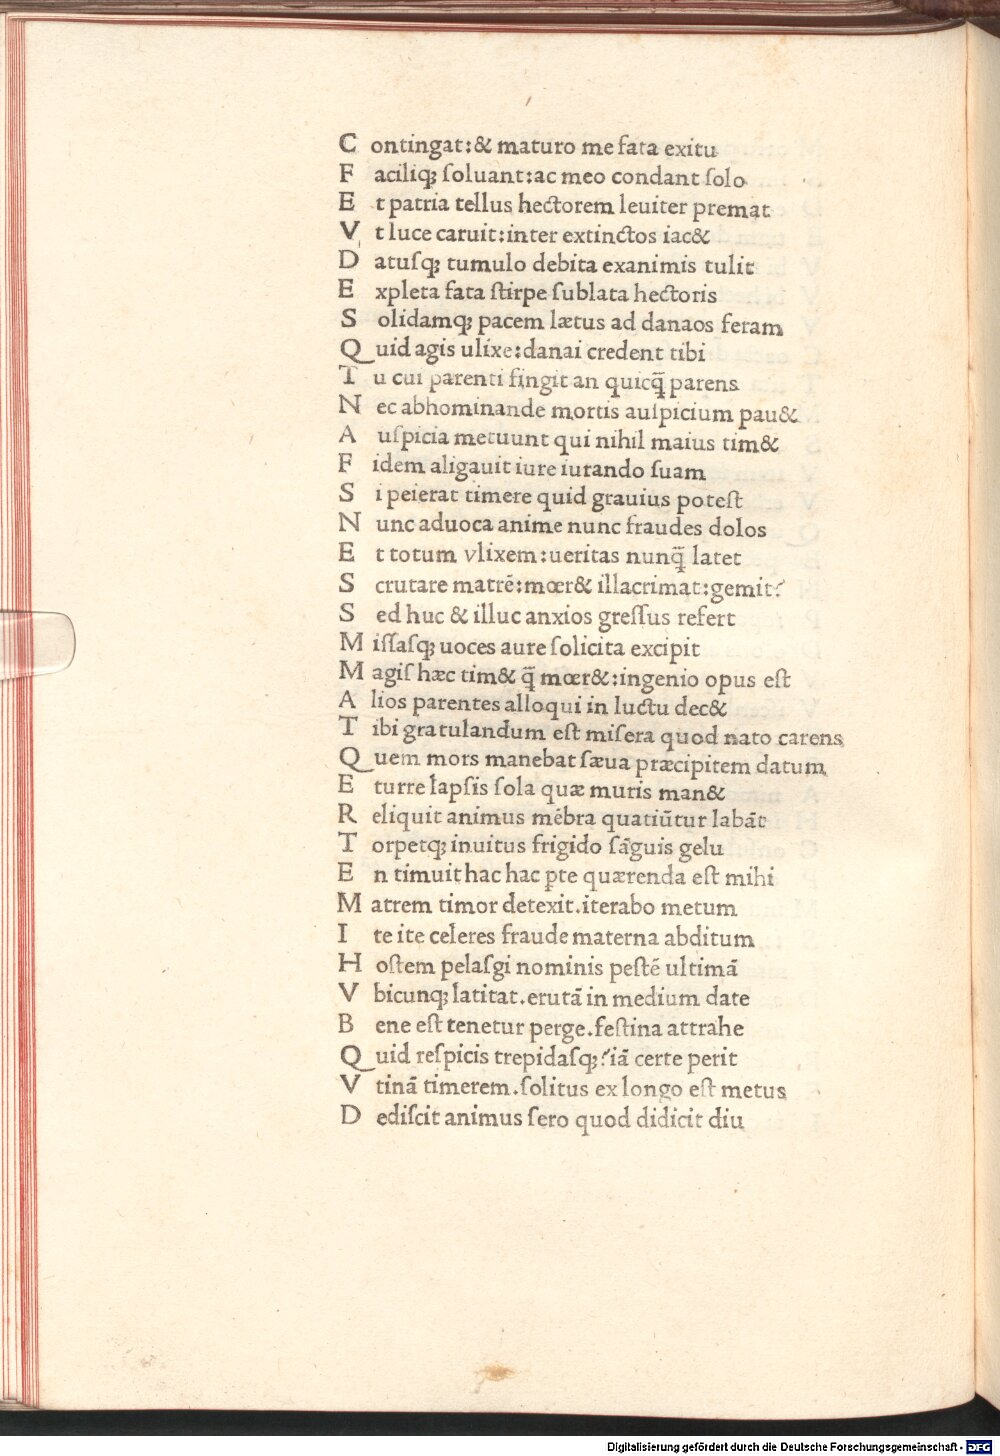 C ontingat:& maturo me fata exitu
F aciliqꝫ ſoluant:ac meo condant ſolo
E t patria tellus hectorem leuiter premat
V t luce caruit:inter extinctos iac&
D atuſqꝫ tumulo debita exanimis tulit
E xpleta fata ſtirpe ſublata hectoris
S olidamqꝫ pacem lætus ad danaos feram
Q uid agis ulixe:danai credent tibi
T u cui parenti fingit an quicq̄ parens
N ec abhominande mortis auſpicium pau&
A uſpicia metuunt qui nihil maius tim&
F idem aligauit iure iurando ſuam
S i peierat timere quid grauius poteſt
N unc aduoca anime nunc fraudes dolos
E t totum vlixem:ueritas nunq̄ latet
S crutare matrē:mœr& illacrimat:gemit?
S ed huc & illuc anxios greſſus refert
M iſſaſqꝫ uoces aure ſolicita excipit
M agiſ hæc tim& q̄ mœr&:ingenio opus eſt
A lios parentes alloqui in luctu dec&
T ibi gratulandum eſt miſera quod nato carens
Q uem mors manebat ſæua præcipitem datum
E turre lapſis ſola quæ muris man&
R eliquit animus mēbra quatiūtur labāt
T orpetqꝫ inuitus frigido ſāguis gelu
E n timuit hac hac pte quærenda eſt mihi
M atrem timor detexit.iterabo metum
I te ite celeres fraude materna abditum
H oſtem pelaſgi nominis peſtē ultimā
V bicunqꝫ latitat.erutā in medium date
B ene eſt tenetur perge.feſtina attrahe
Q uid reſpicis trepidaſqꝫ?iā certe perit
V tinā timerem.ſolitus ex longo eſt metus
D ediſcit animus ſero quod didicit diu
Digitalisierung gefördert durch die Deutsche Forschungsgemeinschaft - DFG